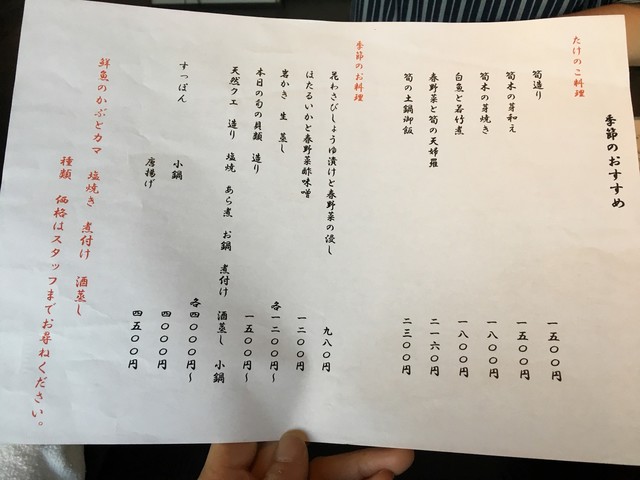 季節のおすすめ
たけのこ料理
筍造り 一五〇〇円
筍木の芽和え 一五〇〇円
筍木の芽焼き 一八〇〇円
白魚と若竹煮 一八〇〇円
春野菜と筍の天婦羅 二一六〇円
筍の土鍋御飯 二三〇〇円
季節のお料理
花わさびしょうゆ漬けと春野菜の浸し 九八〇円
ほたるいかと春野菜酢味噌 一二〇〇円
岩かき 生 蒸し 各一二〇〇円〜
本日の旬の貝類 造り 一五〇〇円
天然クエ 造り 塩焼 あら煮 お鍋 煮付け 酒蒸し 小鍋
各四〇〇〇円〜
すっぽん 小鍋 四〇〇〇円
唐揚げ 四五〇〇円
鮮魚のかぶとカマ 塩焼き 煮付け 酒蒸し
種類 価格はスタッフまでお尋ねください。